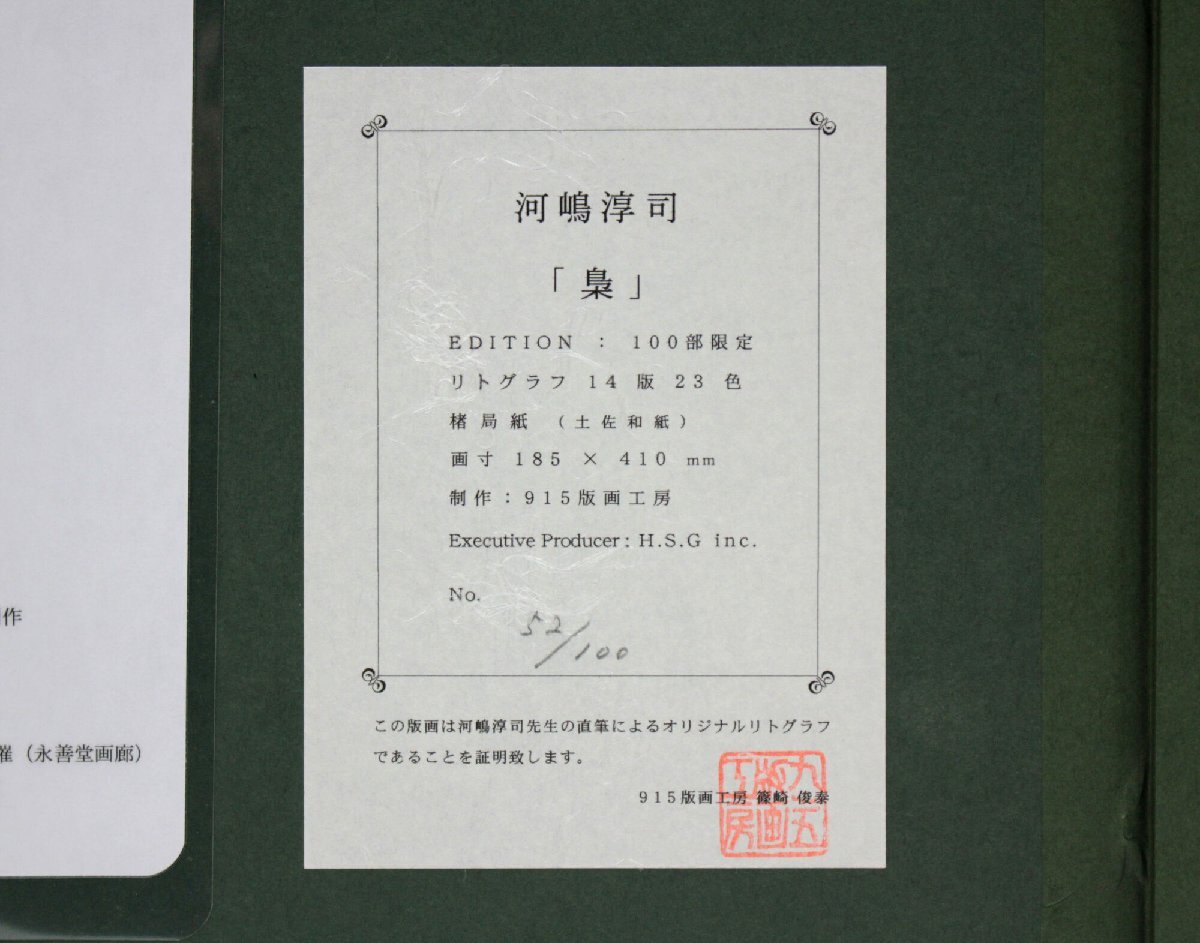 河嶋淳司
「梟」
EDITION : 100部限定
リトグラフ 14 版 23 色
楮局紙 (土佐和紙)
画寸 185 × 410 mm
制作:915版画工房
Executive Producer: H.S.G inc.
No.
52/100
この版画は河嶋淳司先生の直筆によるオリジナルリトグラフ
であることを証明致します。
915版画工房 篠崎 俊泰
九五版画工房
作
(永善堂画廊)